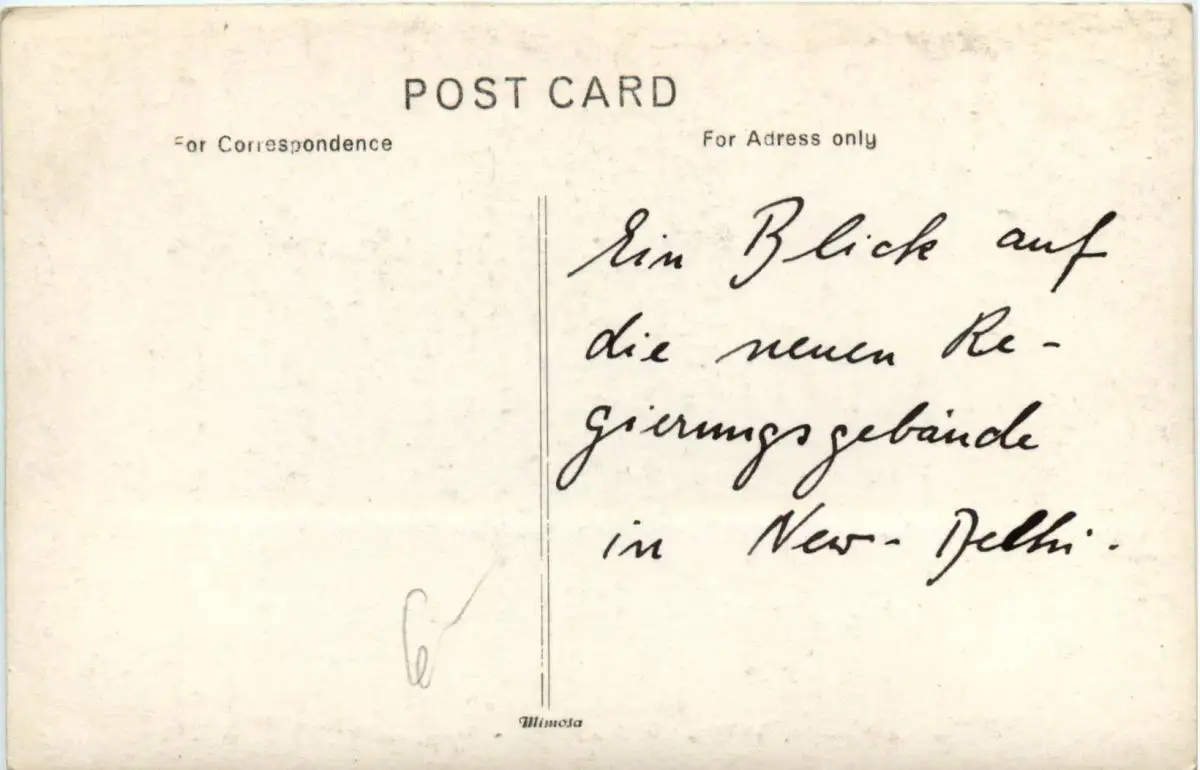 POST CARD
For Correspondence
For Adress only
Ein Blick auf
die neuen Re-
gierungsgebäude
in New-Delhi.
Mimosa